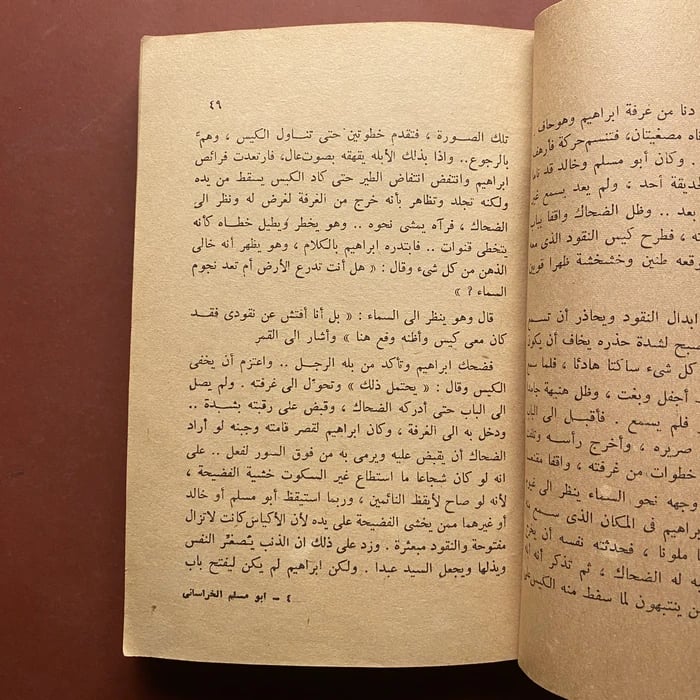 دنا من غرفة ابراهيم وهوحاف
مصغيتان، فتنسم حركة
وكان أبو مسلم وخالد قد
أحد ، ولم يعد يسمع
بعد .. وظل الضحاك واقفا
، فطرح كيس النقود الذى
طنين وخشخشة ظهرا
ابدال النقود ويحاذر أن
لشدة حذره يخاف أن
كل شىء ساكنا هادئا ، فلما
أجفل وبغت ، وظل هنيهة
فلم يسمع . فأقبل الى
صريره ، وأخرج رأسه
خطوات من غرفته ، واقفا
وجهه نحو السماء ينظر الى
ابراهيم فى المكان الذى سمع
ملونا ، فحدثته نفسه أن
له الضحاك ، ثم تذكر أنه
ينتبهون لما سقط منه الكيس
٤٩
تلك الصورة ، فتقدم خطوتين حتى تناول الكيس ، وهمّ
بالرجوع.. واذا بذلك الأبله يقهقه بصوت عال، فارتعدت فرائص
ابراهيم وانتفض انتفاض الطير حتى كاد الكيس يسقط من يده
ولكنه تجلد وتظاهر بأنه خرج من الغرفة لغرض له ونظر الى
الضحاك ، فرآه يمشى نحوه .. وهو يخطر ويطيل خطاه كأنه
يتخطى قنوات .. فابتدره ابراهيم بالكلام ، وهو يظهر أنه خالى
الذهن من كل شىء وقال : « هل أنت تدرع الأرض أم تعد نجوم
السماء ? »
قال وهو ينظر الى السماء : « بل أنا أفتش عن نقودى فقد
كان معى كيس وأظنه وقع هنا » وأشار الى القمر
فضحك ابراهيم وتأكد من بله الرجل .. واعتزم أن يخفى
الكيس وقال : « يحتمل ذلك » وتحوّل الى غرفته . ولم يصل
الى الباب حتى أدركه الضحاك ، وقبض على رقبته بشدة ..
ودخل به الى الغرفة ، وكان ابراهيم لقصر قامته وجبنه لو أراد
الضحاك أن يقبض عليه ويرمى به من فوق السور لفعل .. على
انه لو كان شجاعا ما استطاع غير السكوت خشية الفضيحة ،
لأنه لو صاح لأيقظ النائمين ، وربما استيقظ أبو مسلم أو خالد
أو غيرهما ممن يخشى الفضيحة على يده لأن الأكياس كانت لاتزال
مفتوحة والنقود مبعثرة . وزد على ذلك ان الذنب يُصغّر النفس
ويذلها ويجعل السيد عبدا . ولكن ابراهيم لم يكن ليفتح باب
٤ – ابو مسلم الخراسانى